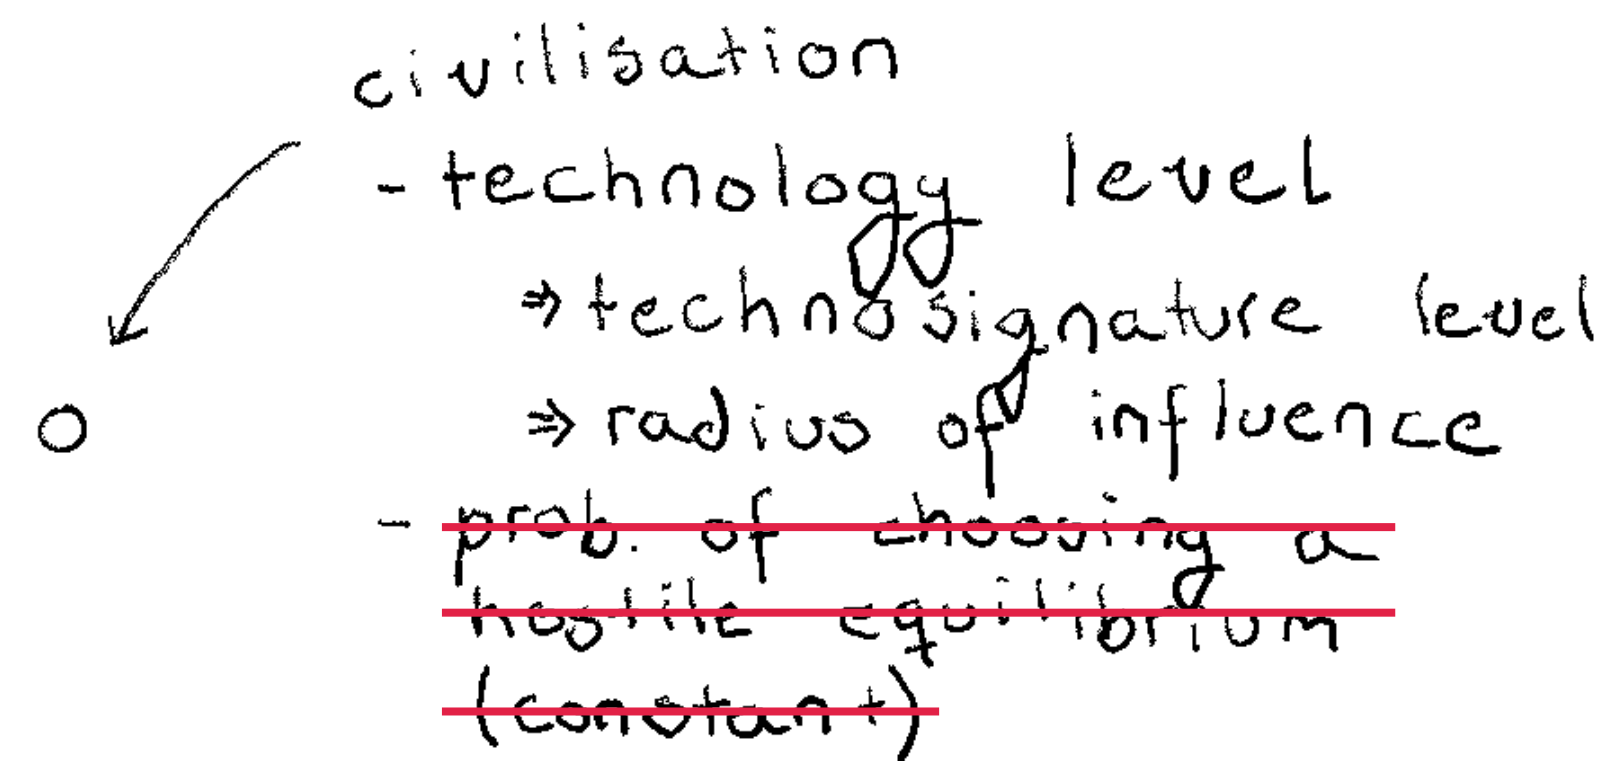 civilisation
- technology level
⇒ technosignature level
⇒ radius of influence
- prob. of choosing a
hostile equilibrium
(constant)